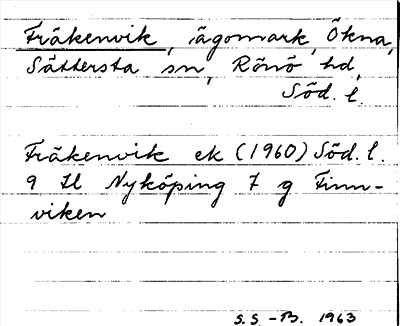 Fräkenvik, ägomark, Ökna,
Sättersta sn, Rönö hd,
Söd. l.
Fräkenvik ek (1960) Söd. l.
9 H Nyköping 7 g Finn-
viken
S.S. -B. 1963